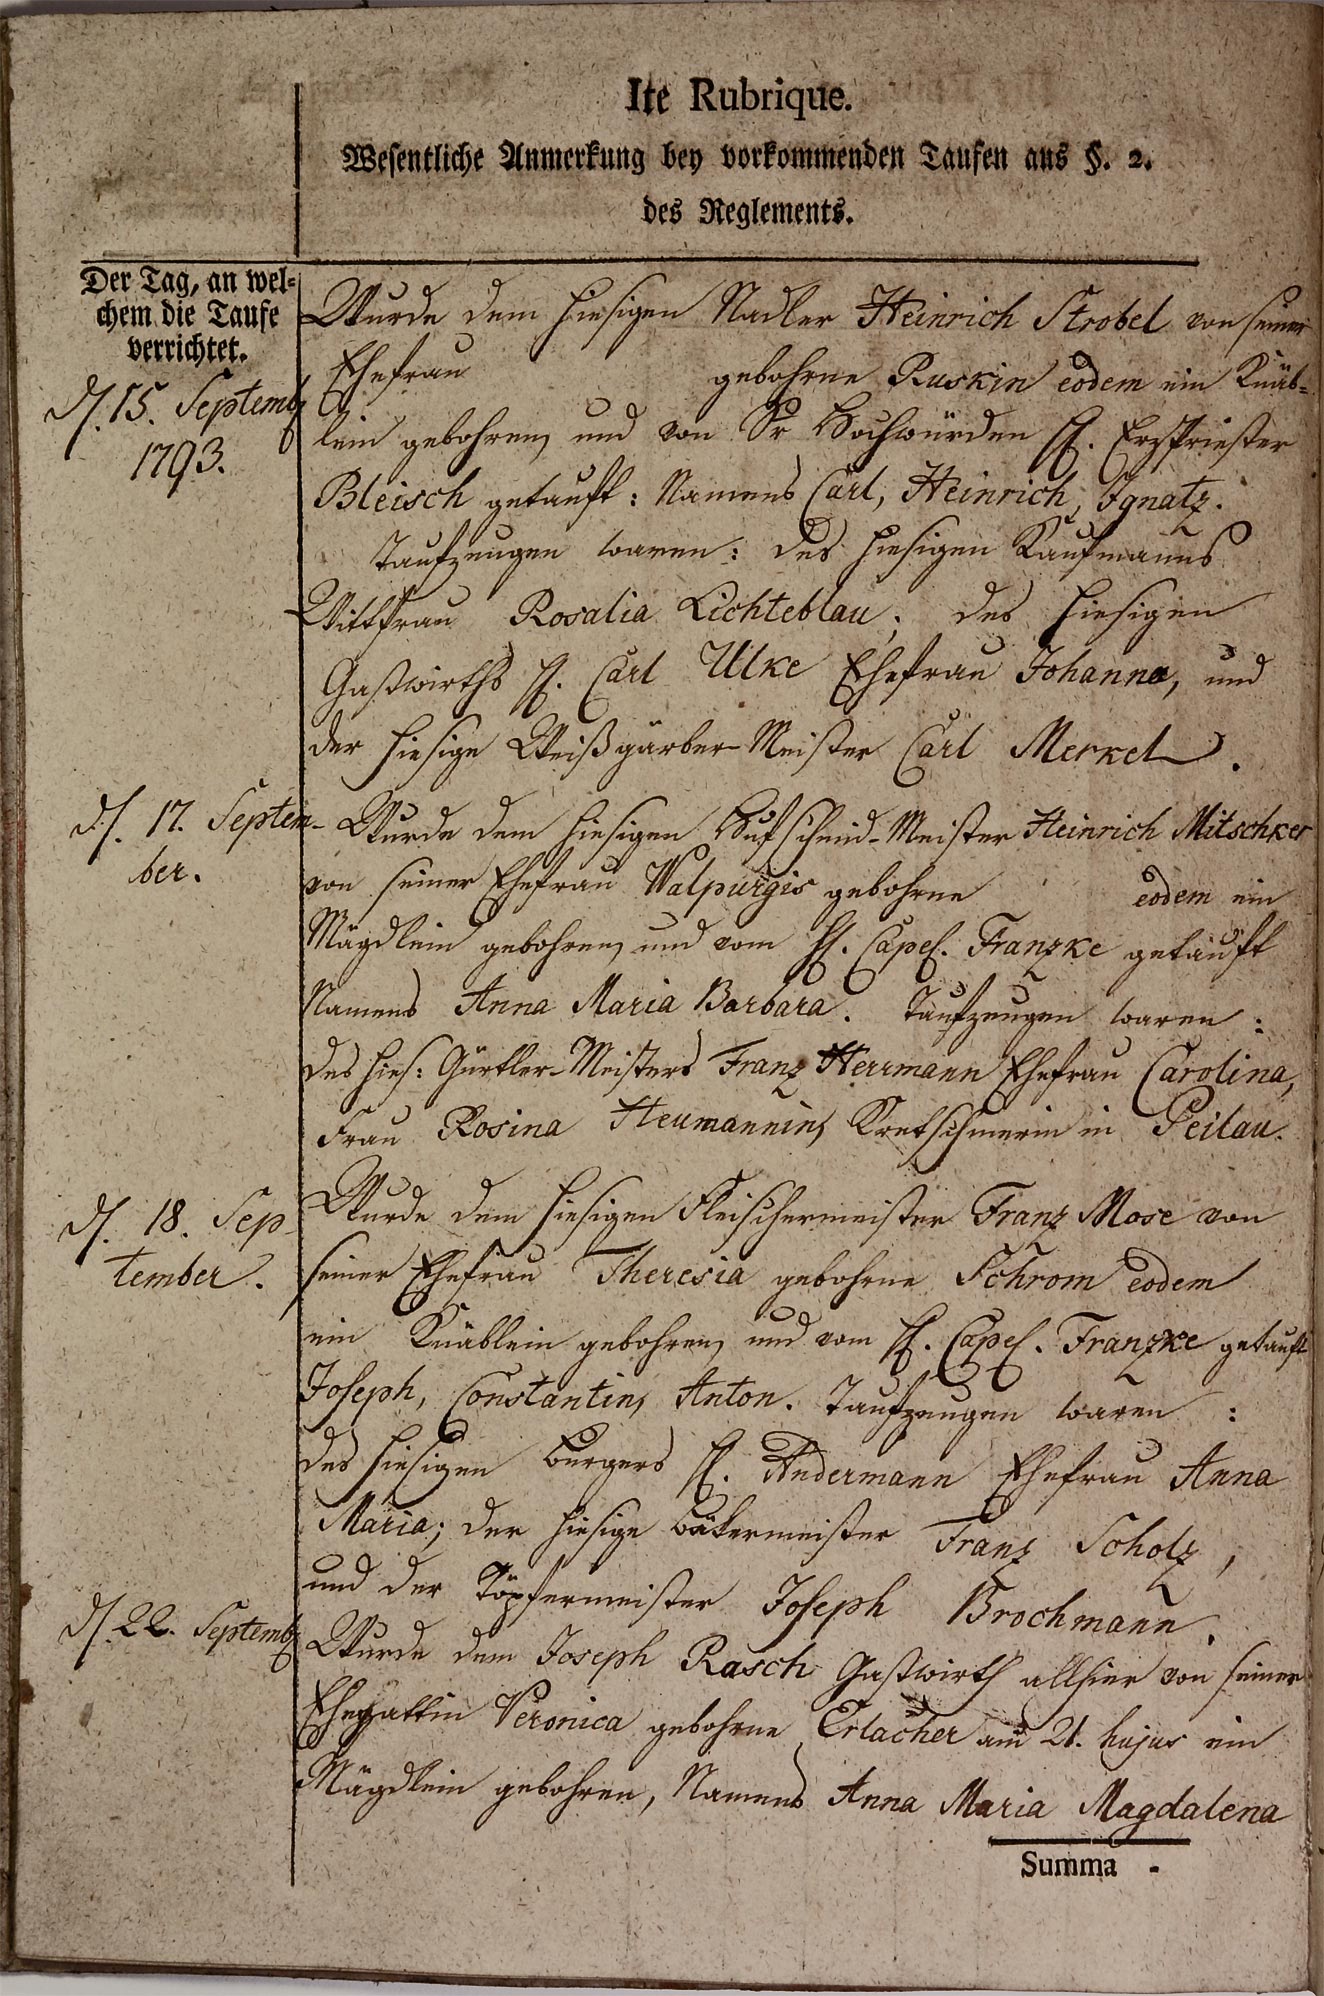 Ite Rubrique.
Wesentliche Anmerkung bey vorkommenden Taufen aus §. 2.
des Reglements.
Der Tag, an wel-
chem die Taufe
verrichtet.
d. 15. Septemb
1793.
Wurde dem hiesigen Nadler Heinrich Strobel von seiner
Ehefrau gebohrne Ruskin eodem ein Knäb-
lein gebohren, und von Sr Hochwürden H. Erzpriester
Bleisch getauft: Namens Carl, Heinrich, Ignatz.
Taufzeugen waren: des hiesigen Kaufmanns
Wittfrau Rosalia Lichteblau, des hiesigen
Gastwirths H. Carl Ulke Ehefrau Johanna, und
der hiesige Weißgärber-Meister Carl Merkel.
d. 17. Septem-
ber.
Wurde dem hiesigen Hufschmid-Meister Heinrich Mitschker
von seiner Ehefrau Walpurgis gebohrne eodem ein
Mägdlein gebohren, und vom H. Capel. Franzke getauft
Namens Anna Maria Barbara. Taufzeugen waren:
des hies: Gürtler-Meisters Franz Herrmann Ehefrau Carolina,
Frau Rosina Heumannin, Kretschmerin in Peilau.
d. 18. Sep-
tember.
Wurde dem hiesigen Fleischermeister Franz Mose von
seiner Ehefrau Theresia gebohrne Schrom eodem
ein Knäblein gebohren, und vom H. Capel. Franzke getauft
Joseph, Constantin, Anton. Taufzeugen waren:
des hiesigen Burgers H. Andermann Ehefrau Anna
Maria; der hiesige Bäkermeister Franz Scholz,
und der Töpfermeister Joseph Brochmann.
d. 22. Septemb
Wurde dem Joseph Rasch Gastwirth allhier von seiner
Ehegattin Veronica gebohrne Erlacher am 21. hujus ein
Mägdlein gebohren, Namens Anna Maria Magdalena
Summa -